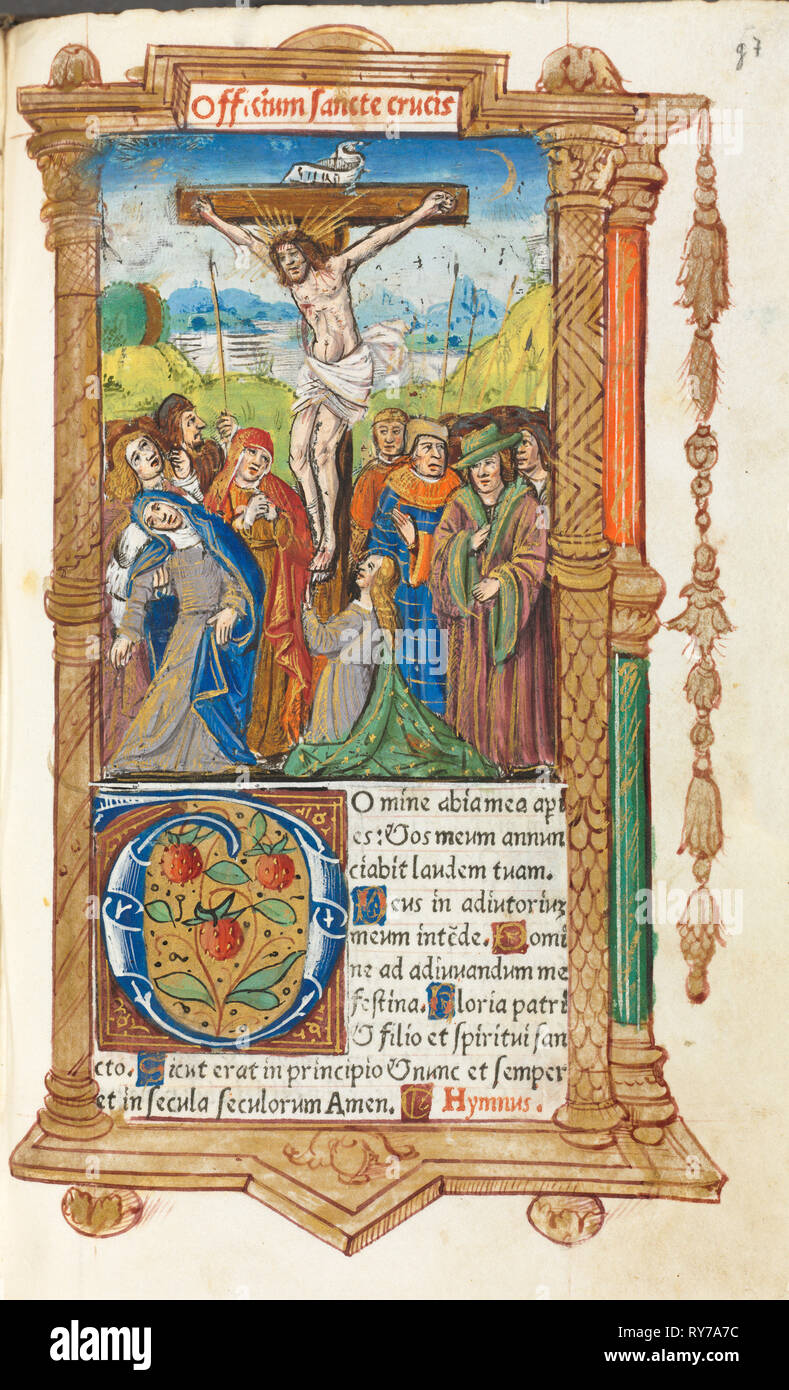 97
Officium sancte crucis
O mine abia mea apri
es: Vos meum annun
ciabit laudem tuam.
Deus in adiutoriuz
meum intēde. Domi
ne ad adiuuandum me
festina. Gloria patri
& filio et spiritui san
cto. Sicut erat in principio & nunc et semper
et in secula seculorum Amen. Hymnus.
alamy
Image ID: RY7A7C
www.alamy.com